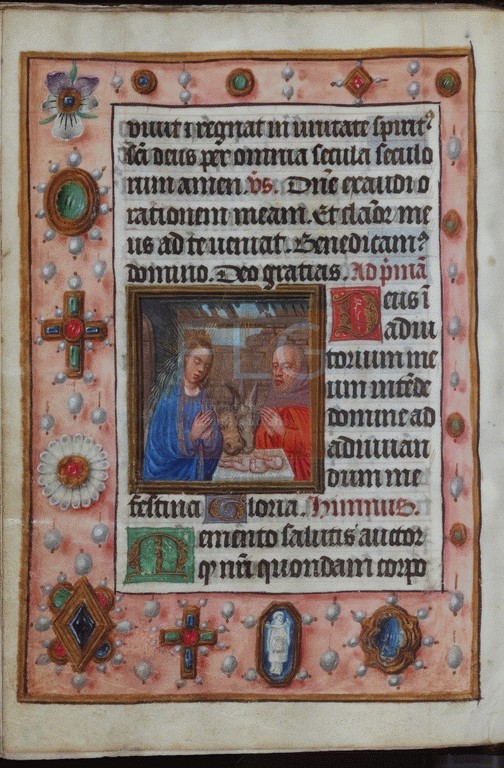 viuit ⁊ regnat in vnitate spirit⁹
sc̄i deus per omnia secula seculo
rum amen. v̄s. Dn̄e exaudi o
rationem meam. Et clāor me
us ad te veniat. Benedicam⁹
domino. Deo gratias. Ad p̄mā
Deus ī
adiu
torium me
um intēde
domine ad
adiuuan
dum me
festina Gloria. Himnus.
Memento salutis auctor
q̄ nr̄i quondam corpo